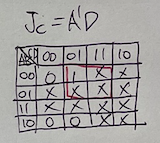 Jc = A'D
00 01 11 10
00 0 1 X X
01 X X X X
11 X X X X
10 0 0 X X